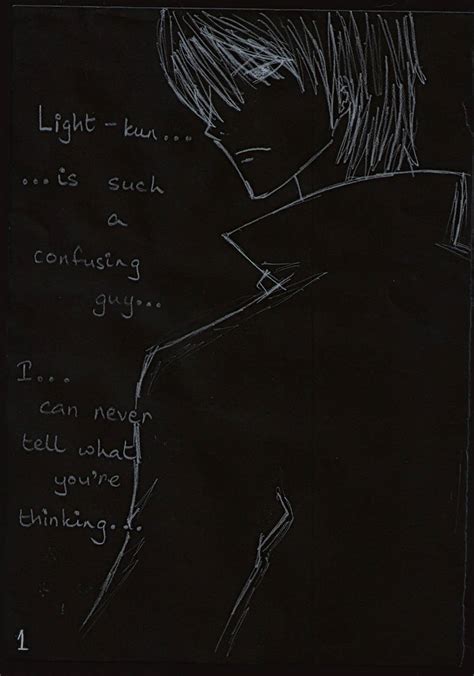 Light-kun...
...is such
a
confusing
guy...
I...
can never
tell what
you're
thinking...
1